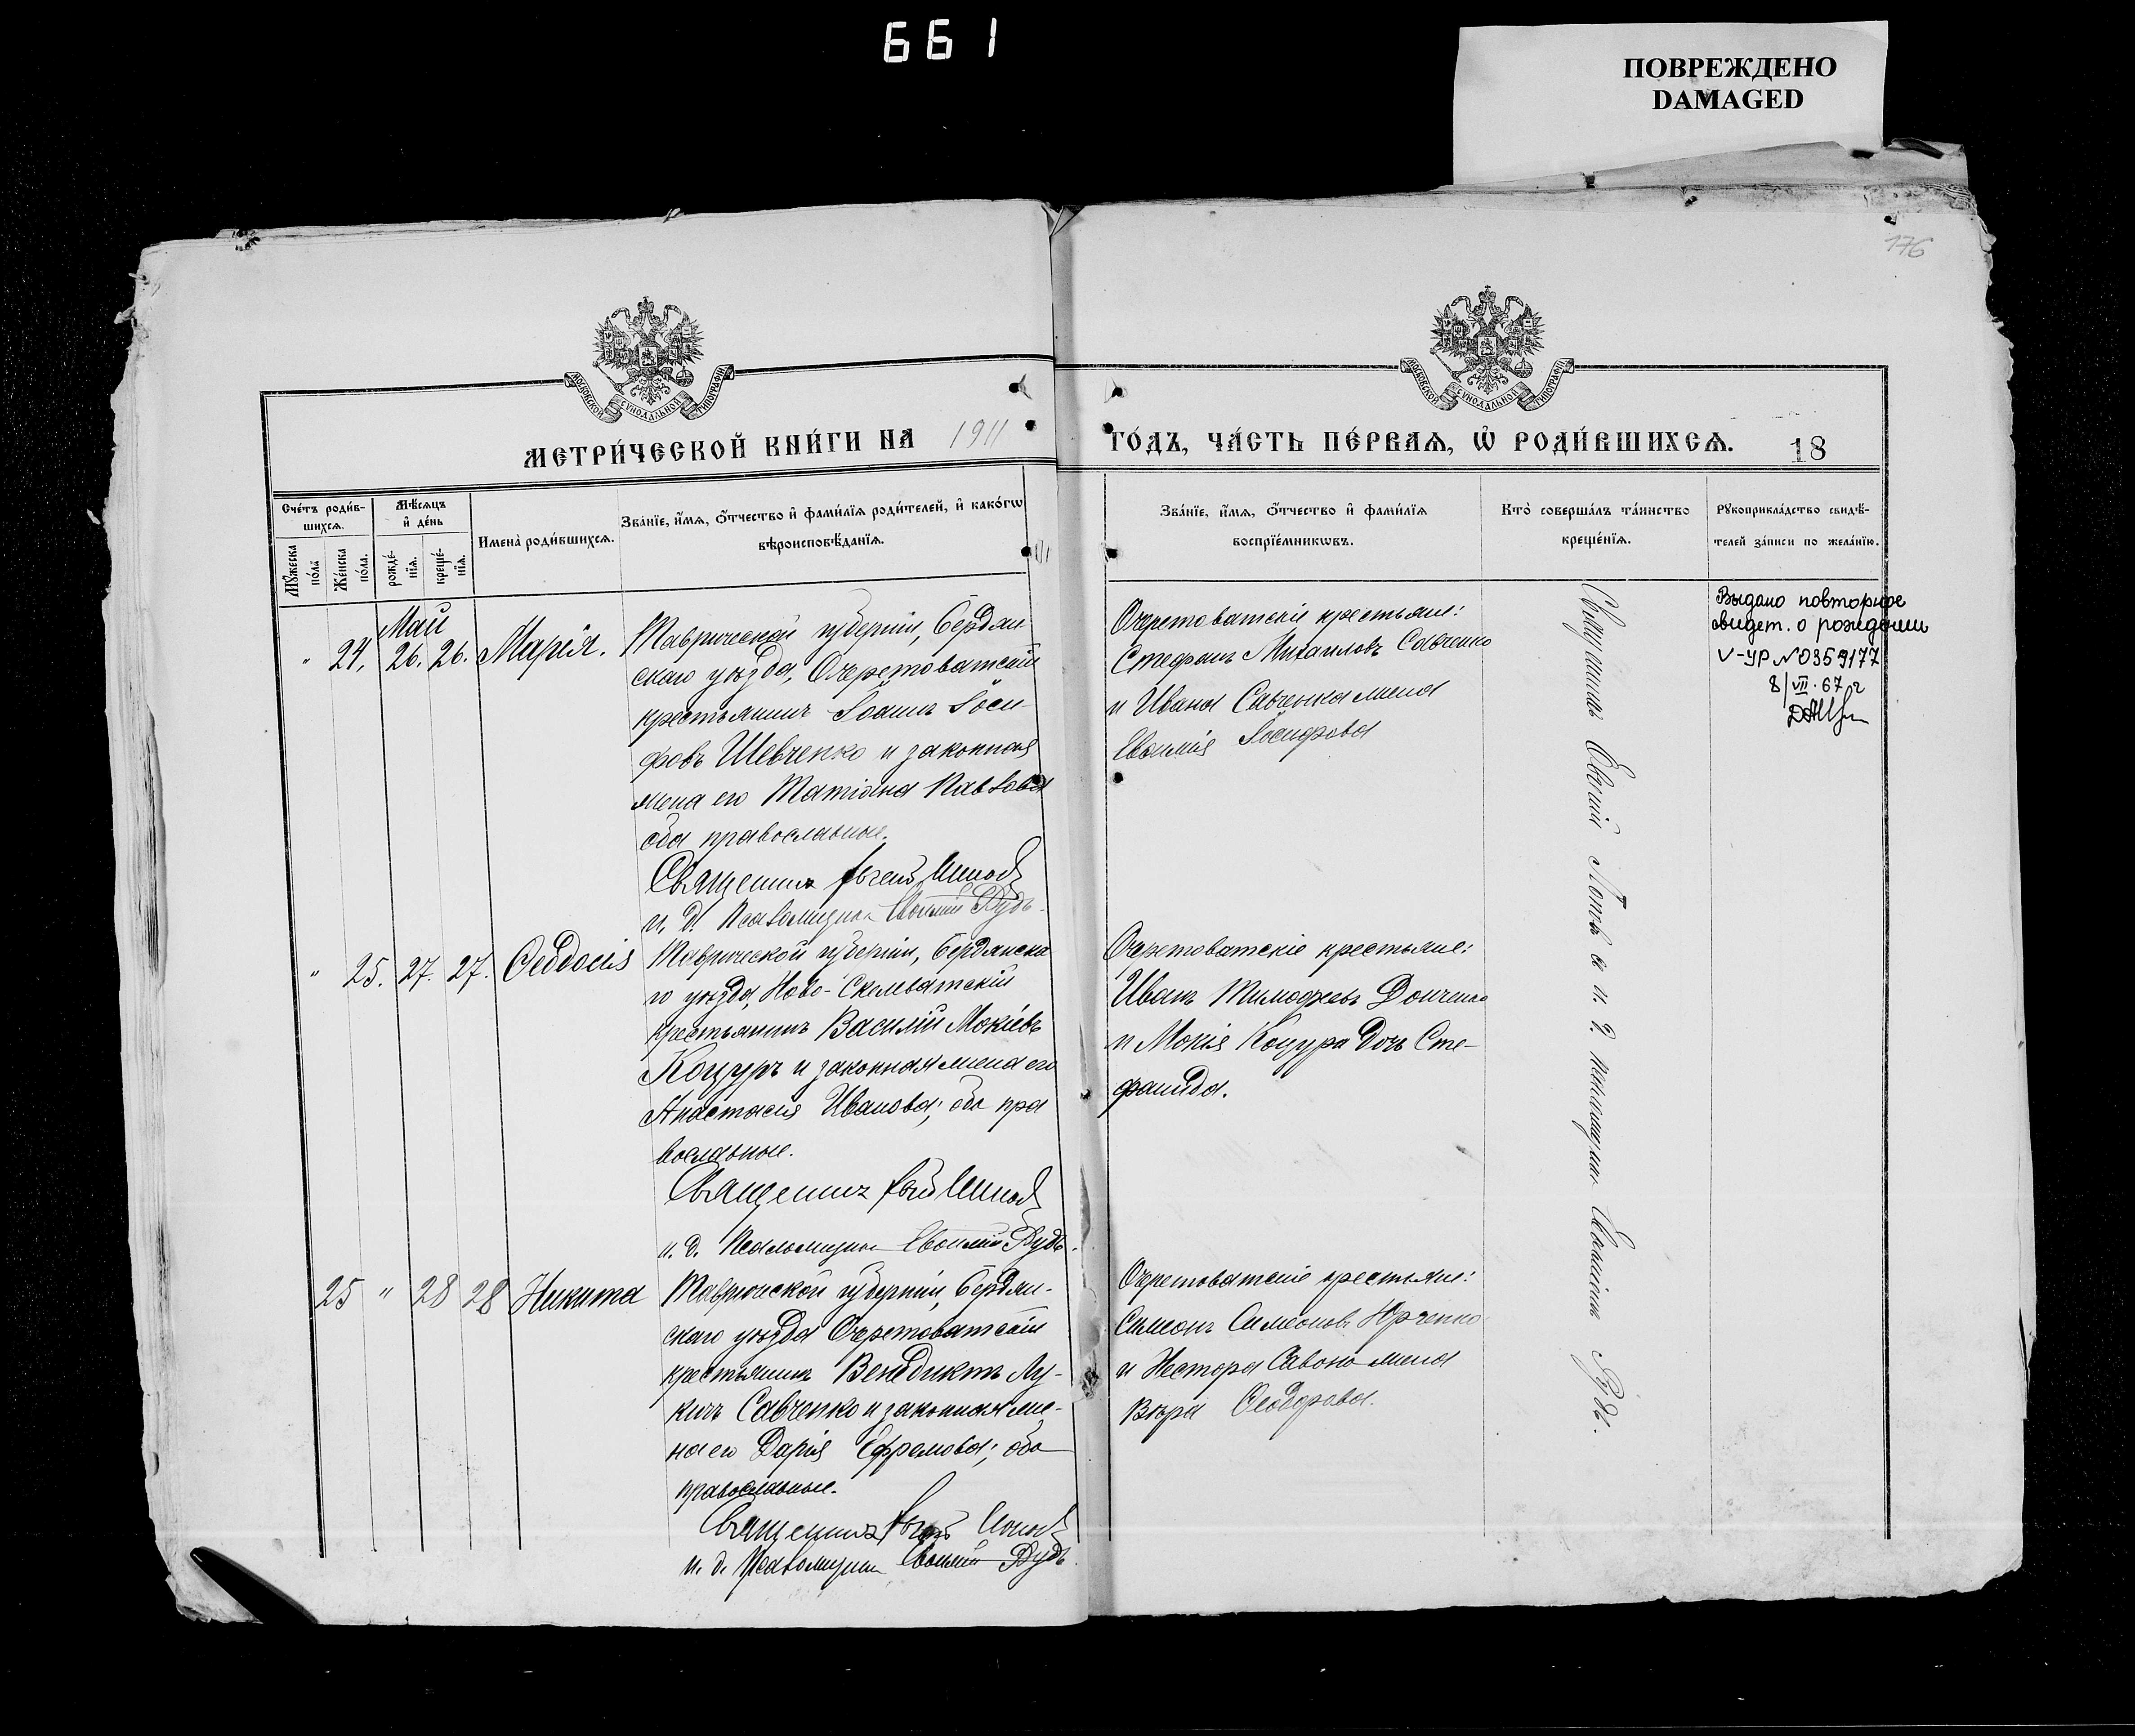 661
ПОВРЕЖДЕНО
DAMAGED
176
МОСКОВСКОЙ СУНОДАЛЬНОЙ ТИПОГРАФІИ
МОСКОВСКОЙ СУНОДАЛЬНОЙ ТИПОГРАФІИ
МЕТРИ́ЧЕСКОЙ КНИ́ГИ НА 1911
ГО́ДЪ, ЧА́СТЬ ПЕ́РВАѦ, Ѡ РОДИ́ВШИХСѦ. 18
Сче́тъ роди́в-
шихсѧ.
Мꙋ́жеска по́ла
Же́нска по́ла.
Мѣ́сѧцъ и҆ де́нь
рожде́-
нїѧ.
креще́-
нїѧ.
Имена̀ роди́вшихсѧ.
Зва́нїе, и҆́мѧ, ѻ҆́тчество и҆ фами́лїѧ роди́телей, и҆ како́гѡ
вѣроисповѣ́данїѧ.
Зва́нїе, и҆́мѧ, ѻ҆́тчество и҆ фами́лїѧ
воспрїе́мникѡвъ.
Кто̀ соверша́лъ та́инство
креще́нїѧ.
Рꙋкоприкла́дство свидѣ́-
телей за́писи по жела́нїю.
Май
" 24. 26. 26. Марія.
Таврической губерніи, Бердян
скаго уѣзда, Очеретоватскій
крестьянинъ Іоаннъ Іоси
фовъ Шевченко и законная
жена его Татіана Павлова
оба православные.
Священникъ
и. д. Псаломщика Евѳимій Рудь
Очеретоватскіе крестьяне:
Стефанъ Михаиловъ Савченко
и Ивана Савченка жена
Евѳимія Іосифова
Выдано повторное
свидет. о рождении
V-УР №0359177
8/VII.67 г
" 25. 27. 27. Ѳеодосія
Таврической губерніи, Бердянска
го уѣзда, Ново-Скелеватскій
крестьянинъ Василій Мокіевъ
Коцуръ и законная жена его
Анастасія Иванова; оба пра
вославные.
Священникъ
и. д. Псаломщика Евѳимій Рудь.
Очеретоватскіе крестьяне:
Иванъ Тимоѳеевъ Донченко
и Мокія Коцура дочь Сте-
фанида.
25 " 28 28 Никита
Таврической губерніи, Бердян-
скаго уѣзда Очеретоватскій
крестьянинъ Венедиктъ Лу-
кичъ Савченко и законная же-
на его Дарія Ефремова; оба
православные.
Священникъ
и. д. Псаломщика Евѳимій Рудь
Очеретоватскіе крестьяне:
Симонъ Симеоновъ Юрченко
и Нестора Савона жена
Вѣра Ѳеодорова.
Священникъ с и. д. псаломщика Евѳиміемъ Рудь.